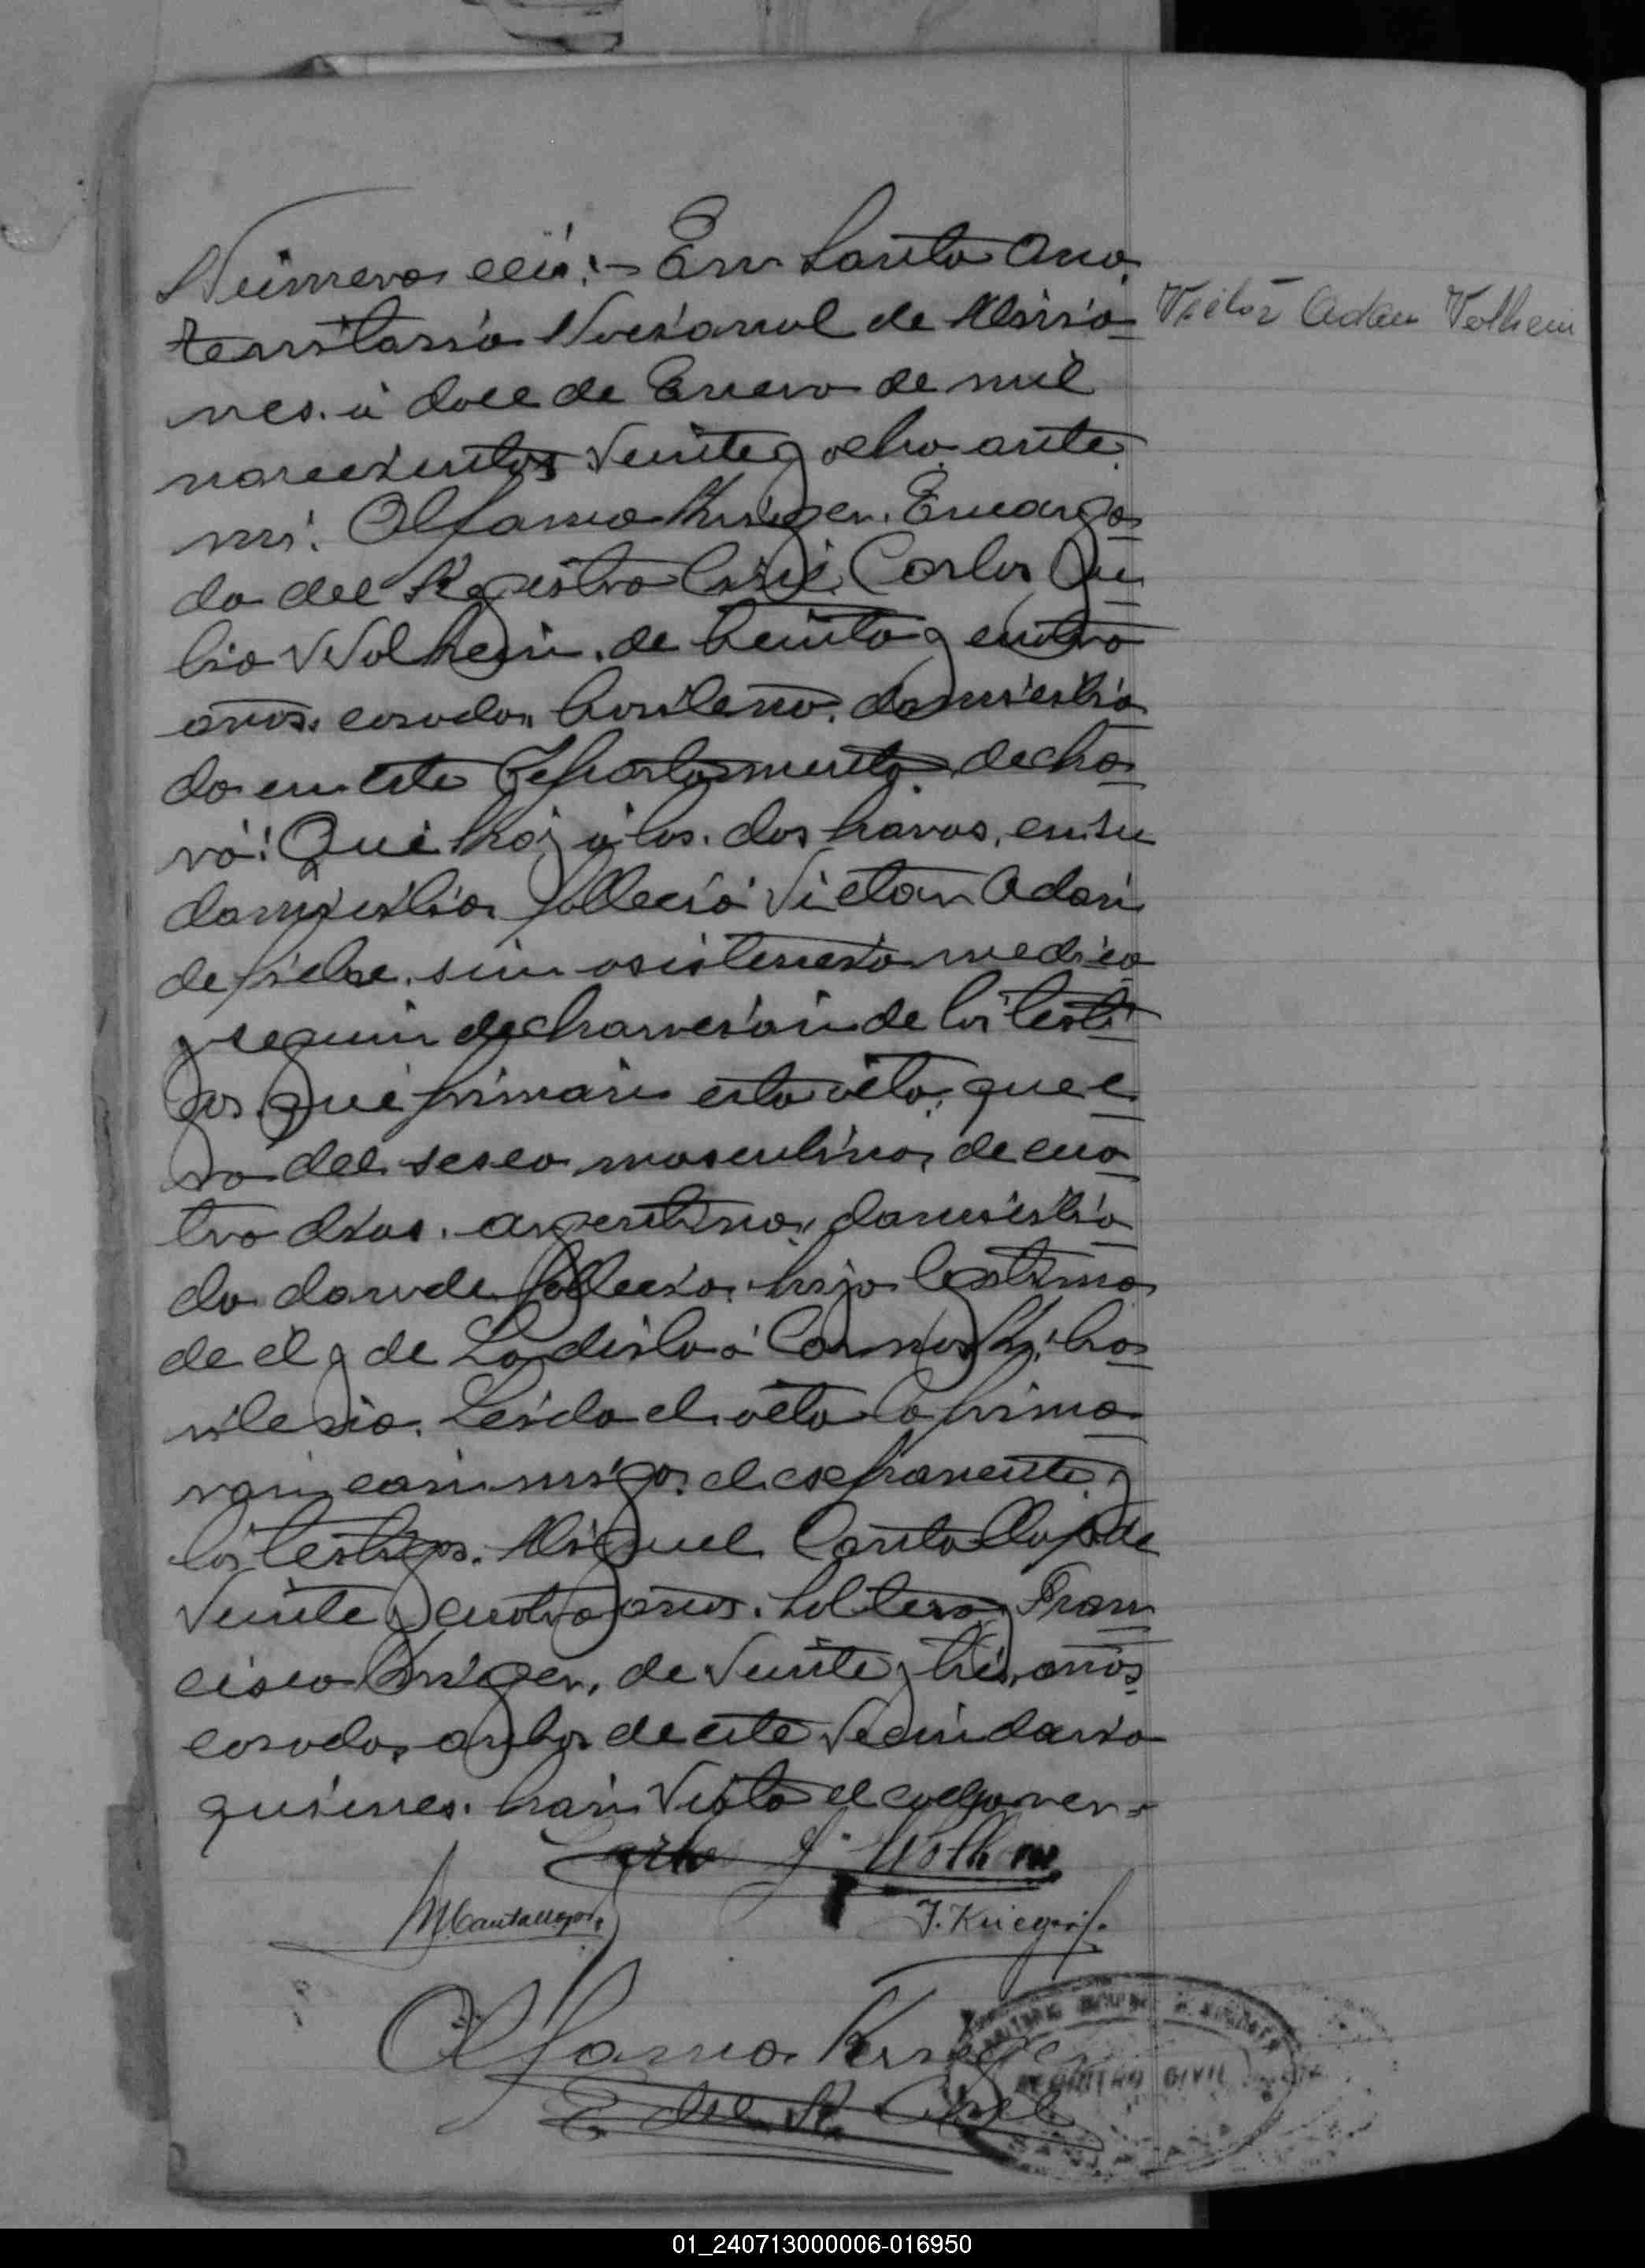 En Santa Ana
territorio Nacional de Misio
Victor Adan Volhein
nes. á doce de Enero de mil
novecientos veinte y ocho. ante
mi. Olfanio Kriger. Encarga
do del Registro Civil, Carlos Ju
lio Wolhein. de treinta y cuatro
años. casado. brasilero. domicilia
do en este Departamento. decla
ró: Que hoy á las. dos horas, en su
domicilio. falleció Victor Adan
de fiebre. sin asistencia medica
y segun declaracion de los testi
gos. que firman esta acta, que e
ra del sexo masculino, de cua
tro dias. argentino. domicilia
do donde fallecio. hijo legitimo
de él y de Ladislaá bra
silera. Leida el acta la firma
ron conmigo. el exponente. y
los testigos. Miguel Cantallops de
veinte y cuatro años. soltero y Fran
cisco Kriger, de veinte y tres, años
casado, ambos de este vecindario
quienes. han visto el cadaver.-
Carlos J. Wolhein
M. Cantallops
F. Krieger
Olfanio Kriger
E. del R. Civil
REGISTRO CIVIL
01_240713000006-016950